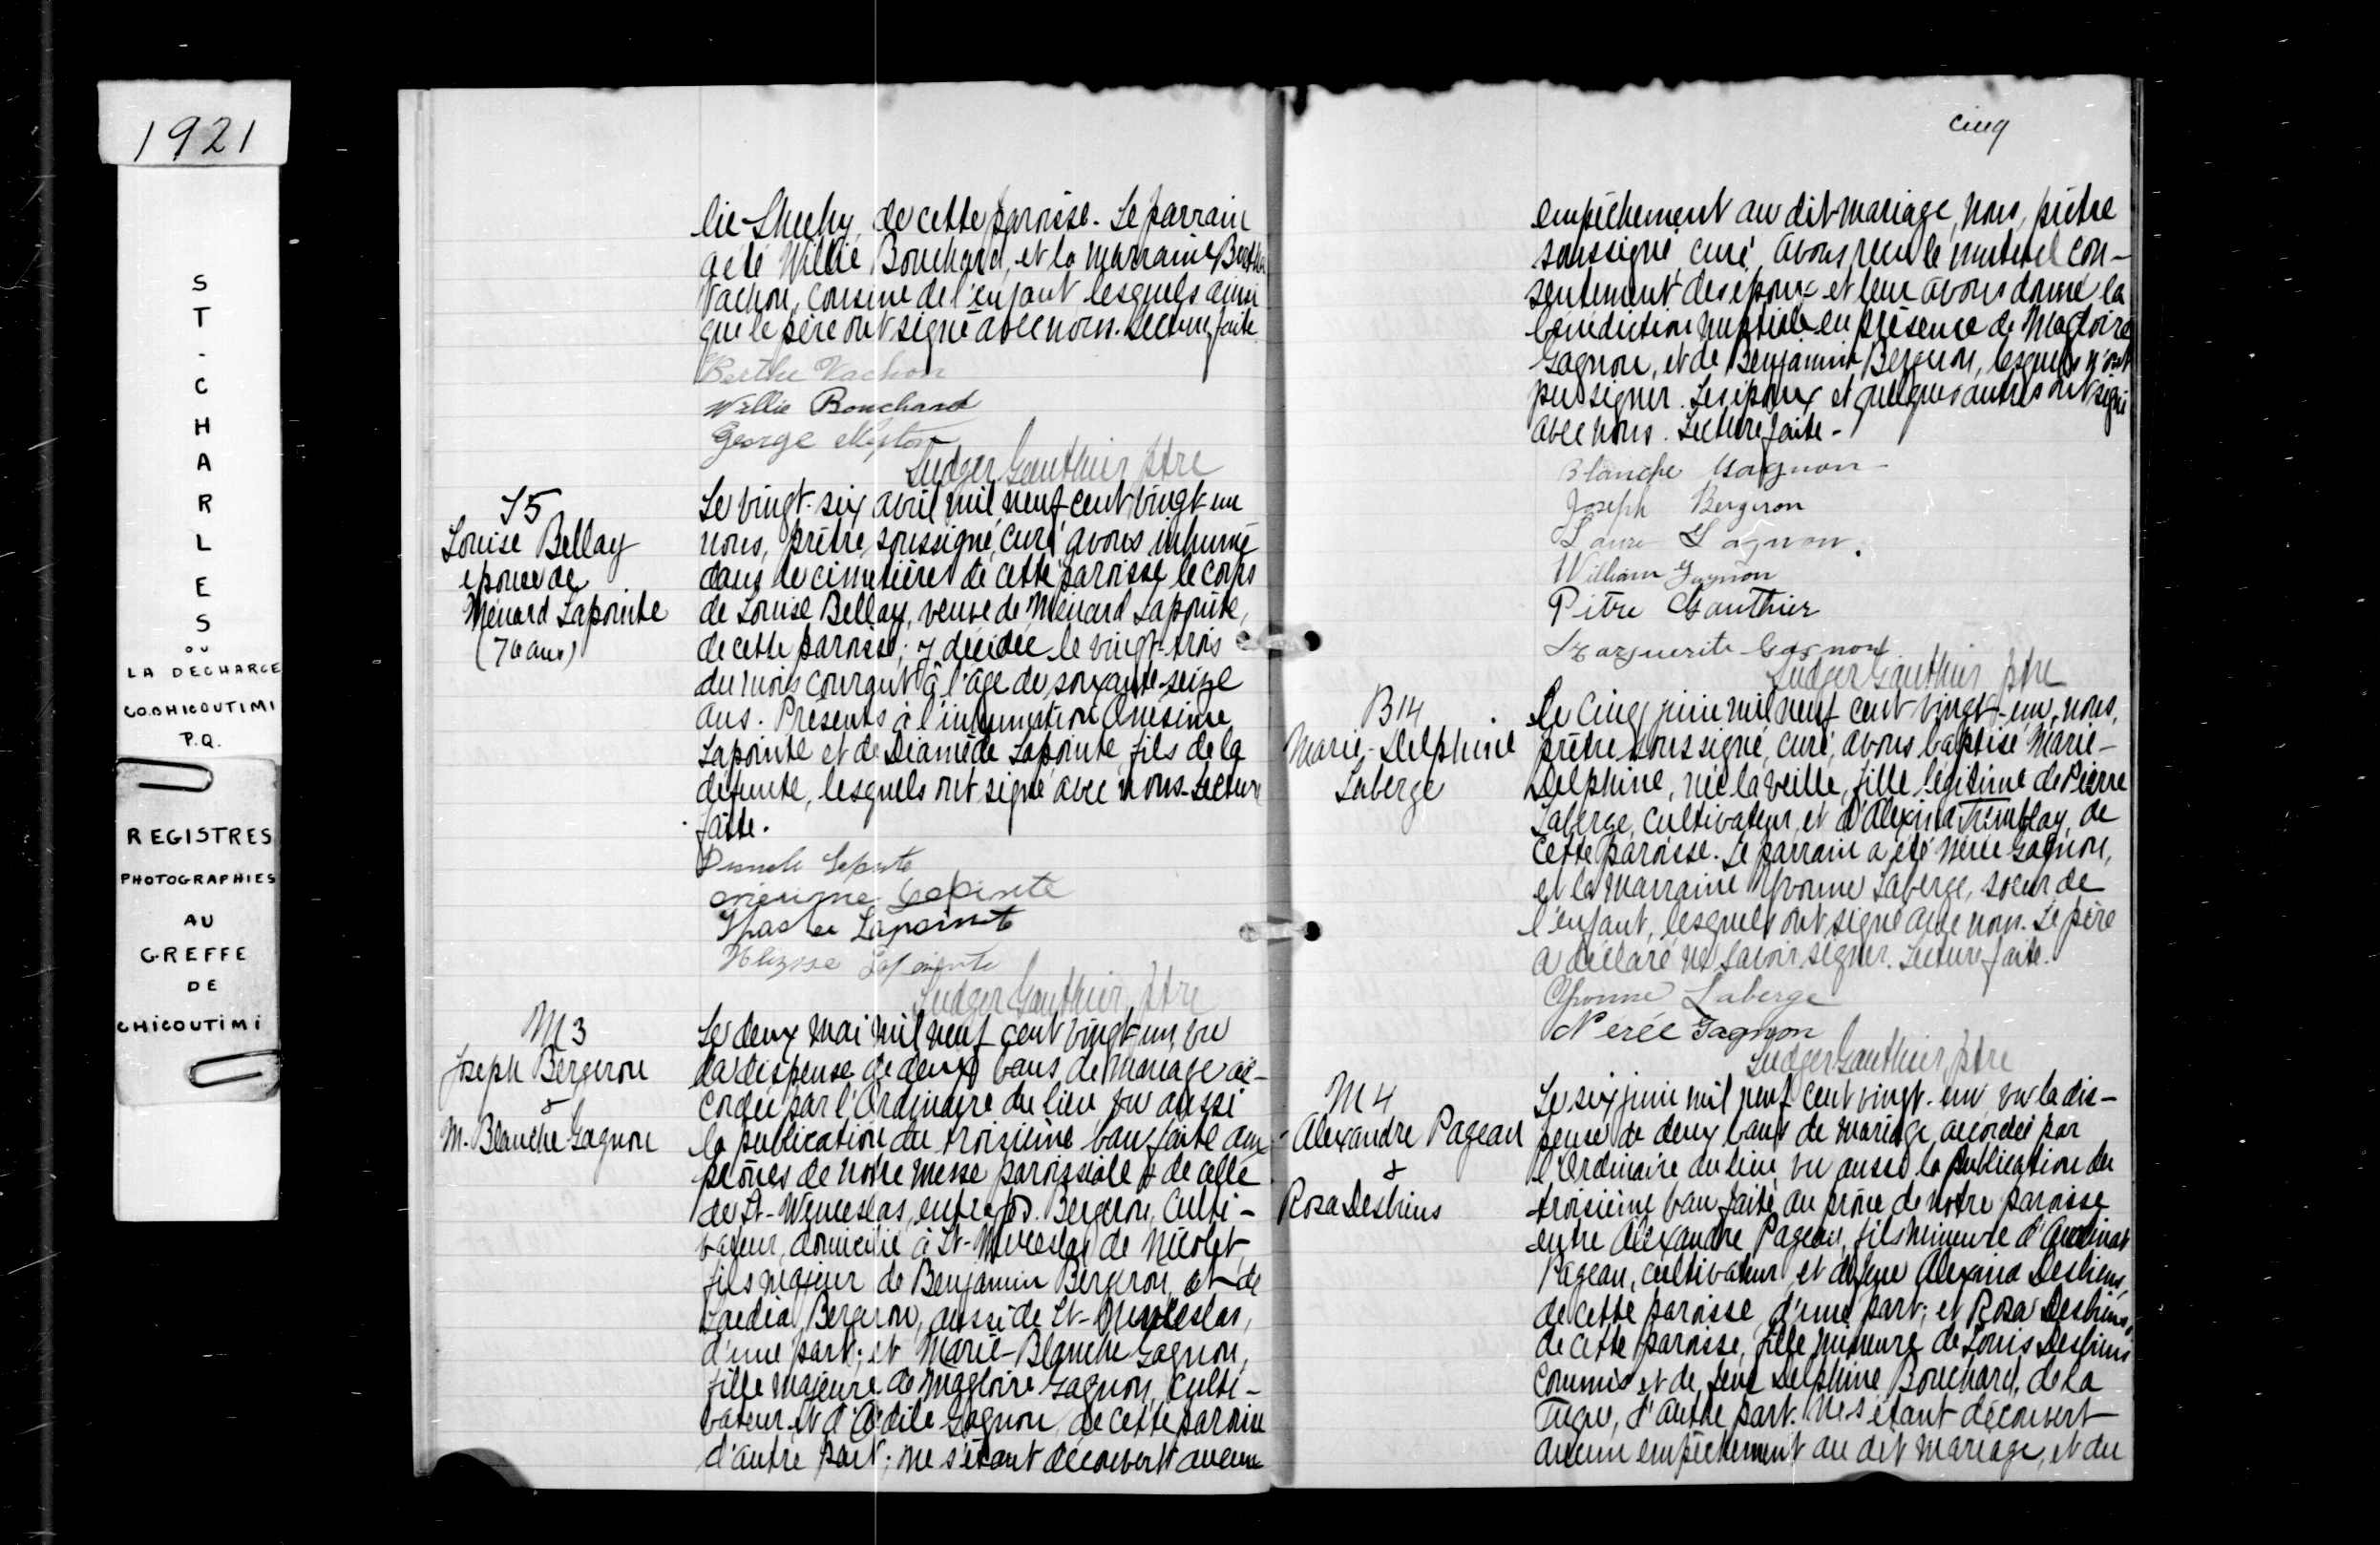 1921
ST-CHARLES
OU
LA DECHARGE
CO. CHICOUTIMI
P.Q.
REGISTRES
PHOTOGRAPHIES
AU
GREFFE
DE
CHICOUTIMI
lie Sheehy, de cette paroisse. Le parrain
a été Willie Bouchard, et la marraine Berthe
Vachon, cousine de l'enfant lesquels ainsi
que le père ont signé avec nous. Lecture faite.
Berthe Vachon
Willie Bouchard
George
Ludger Gauthier ptre
S5
Louise Bellay
épouse de
Ménard Lapointe
(76 ans)
Le vingt-six avril mil neuf cent vingt-un
nous, prêtre, soussigné, curé avons inhumé
dans le cimetière de cette paroisse le corps
de Louise Bellay, veuve de Ménard Lapointe,
de cette paroisse, y décédée le vingt-trois
du mois courant à l'âge de soixante-seize
ans. Présents à l'inhumation Onésime
Lapointe et de Diamède Lapointe, fils de la
défunte, lesquels ont signé avec nous. Lecture
faite.
Lapointe
Lapointe
Lapointe
Lapointe
Ludger Gauthier, ptre
M3
Joseph Bergeron
&
M. Blanche Gagnon
Le deux mai mil neuf cent vingt-un, vu
la dispense de deux bans de mariage ac-
cordée par l'Ordinaire du lieu vu aussi
la publication du troisième ban faite aux
prônes de notre messe paroissiale & de celle
de St-Wenceslas, entre Jos. Bergeron, culti-
vateur, domicilié à St-Wenceslas de Nicolet,
fils majeur de Benjamin Bergeron, et de
Bergeron, aussi de St-Wenceslas,
d'une part; et Marie-Blanche Gagnon,
fille majeure de Magloire Gagnon, culti-
vateur et d'Odile Gagnon, de cette paroisse
d'autre part; ne s'étant découvert aucun
cinq
empêchement au dit mariage, nous, prêtre
soussigné, curé, avons reçu le mutuel con-
sentement des époux et leur avons donné la
bénédiction nuptiale en présence de Magloire
Gagnon, et de Benjamin Bergeron, lesquels n'ont
pu signer. Les époux et quelques autres ont signé
avec nous. Lecture faite -
Blanche Gagnon
Joseph Bergeron
Laure Gagnon.
William Gagnon
Pitre Gauthier
Marguerite Gagnon
Ludger Gauthier ptre
B14
Marie-Delphine
Laberge
Le cinq juin mil neuf cent vingt-un, nous,
prêtre soussigné, curé, avons baptisé Marie-
Delphine, née la veille, fille légitime de Pierre
Laberge, cultivateur, et d'Alexina Tremblay, de
cette paroisse. Le parrain a été Nérée Gagnon,
et la marraine Yvonne Laberge, soeur de
l'enfant, lesquels ont signé avec nous. Le père
a déclaré ne savoir signer. Lecture faite.
Yvonne Laberge
Nérée Gagnon
Ludger Gauthier, ptre
M4
Alexandre Pageau
&
Rosa Desbiens
Le six juin mil neuf cent vingt-un, vu la dis-
pense de deux bans de mariage accordée par
l'Ordinaire du lieu, vu aussi la publication du
troisième ban faite au prône de notre paroisse
entre Alexandre Pageau, fils mineur d'
Pageau, cultivateur et de feue Alexina Desbiens,
de cette paroisse, d'une part; et Rosa Desbiens,
de cette paroisse, fille mineure de Louis Desbiens
commis et de feue Delphine Bouchard, de La
Tuque, d'autre part. Ne s'étant découvert
aucun empêchement au dit mariage, et du